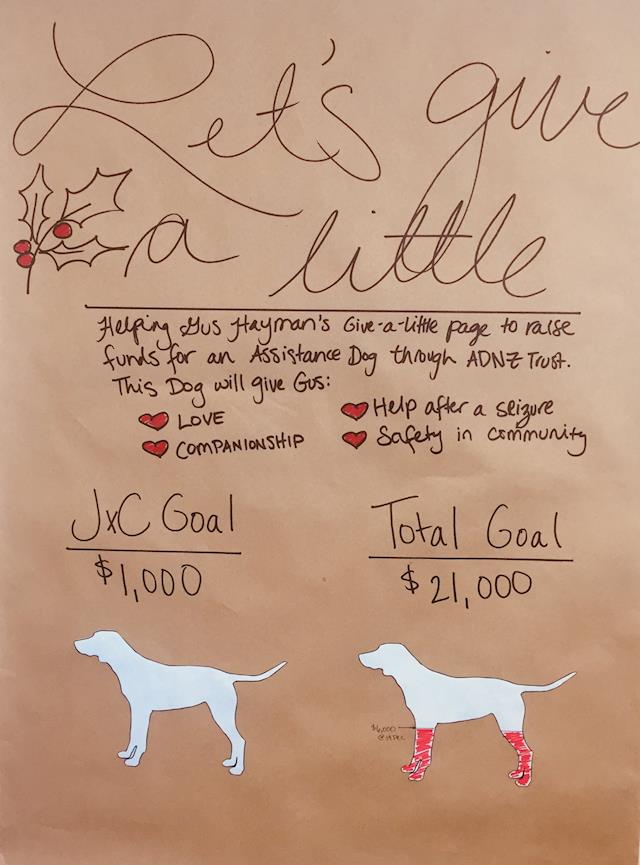 Let's give
a little
Helping Gus Hayman's Give-a-little page to raise
funds for an Assistance Dog through ADNZ Trust.
This Dog will give Gus:
LOVE
COMPANIONSHIP
Help after a seizure
Safety in community
JxC Goal
$1,000
Total Goal
$21,000
$6,000
@ 14 DEC